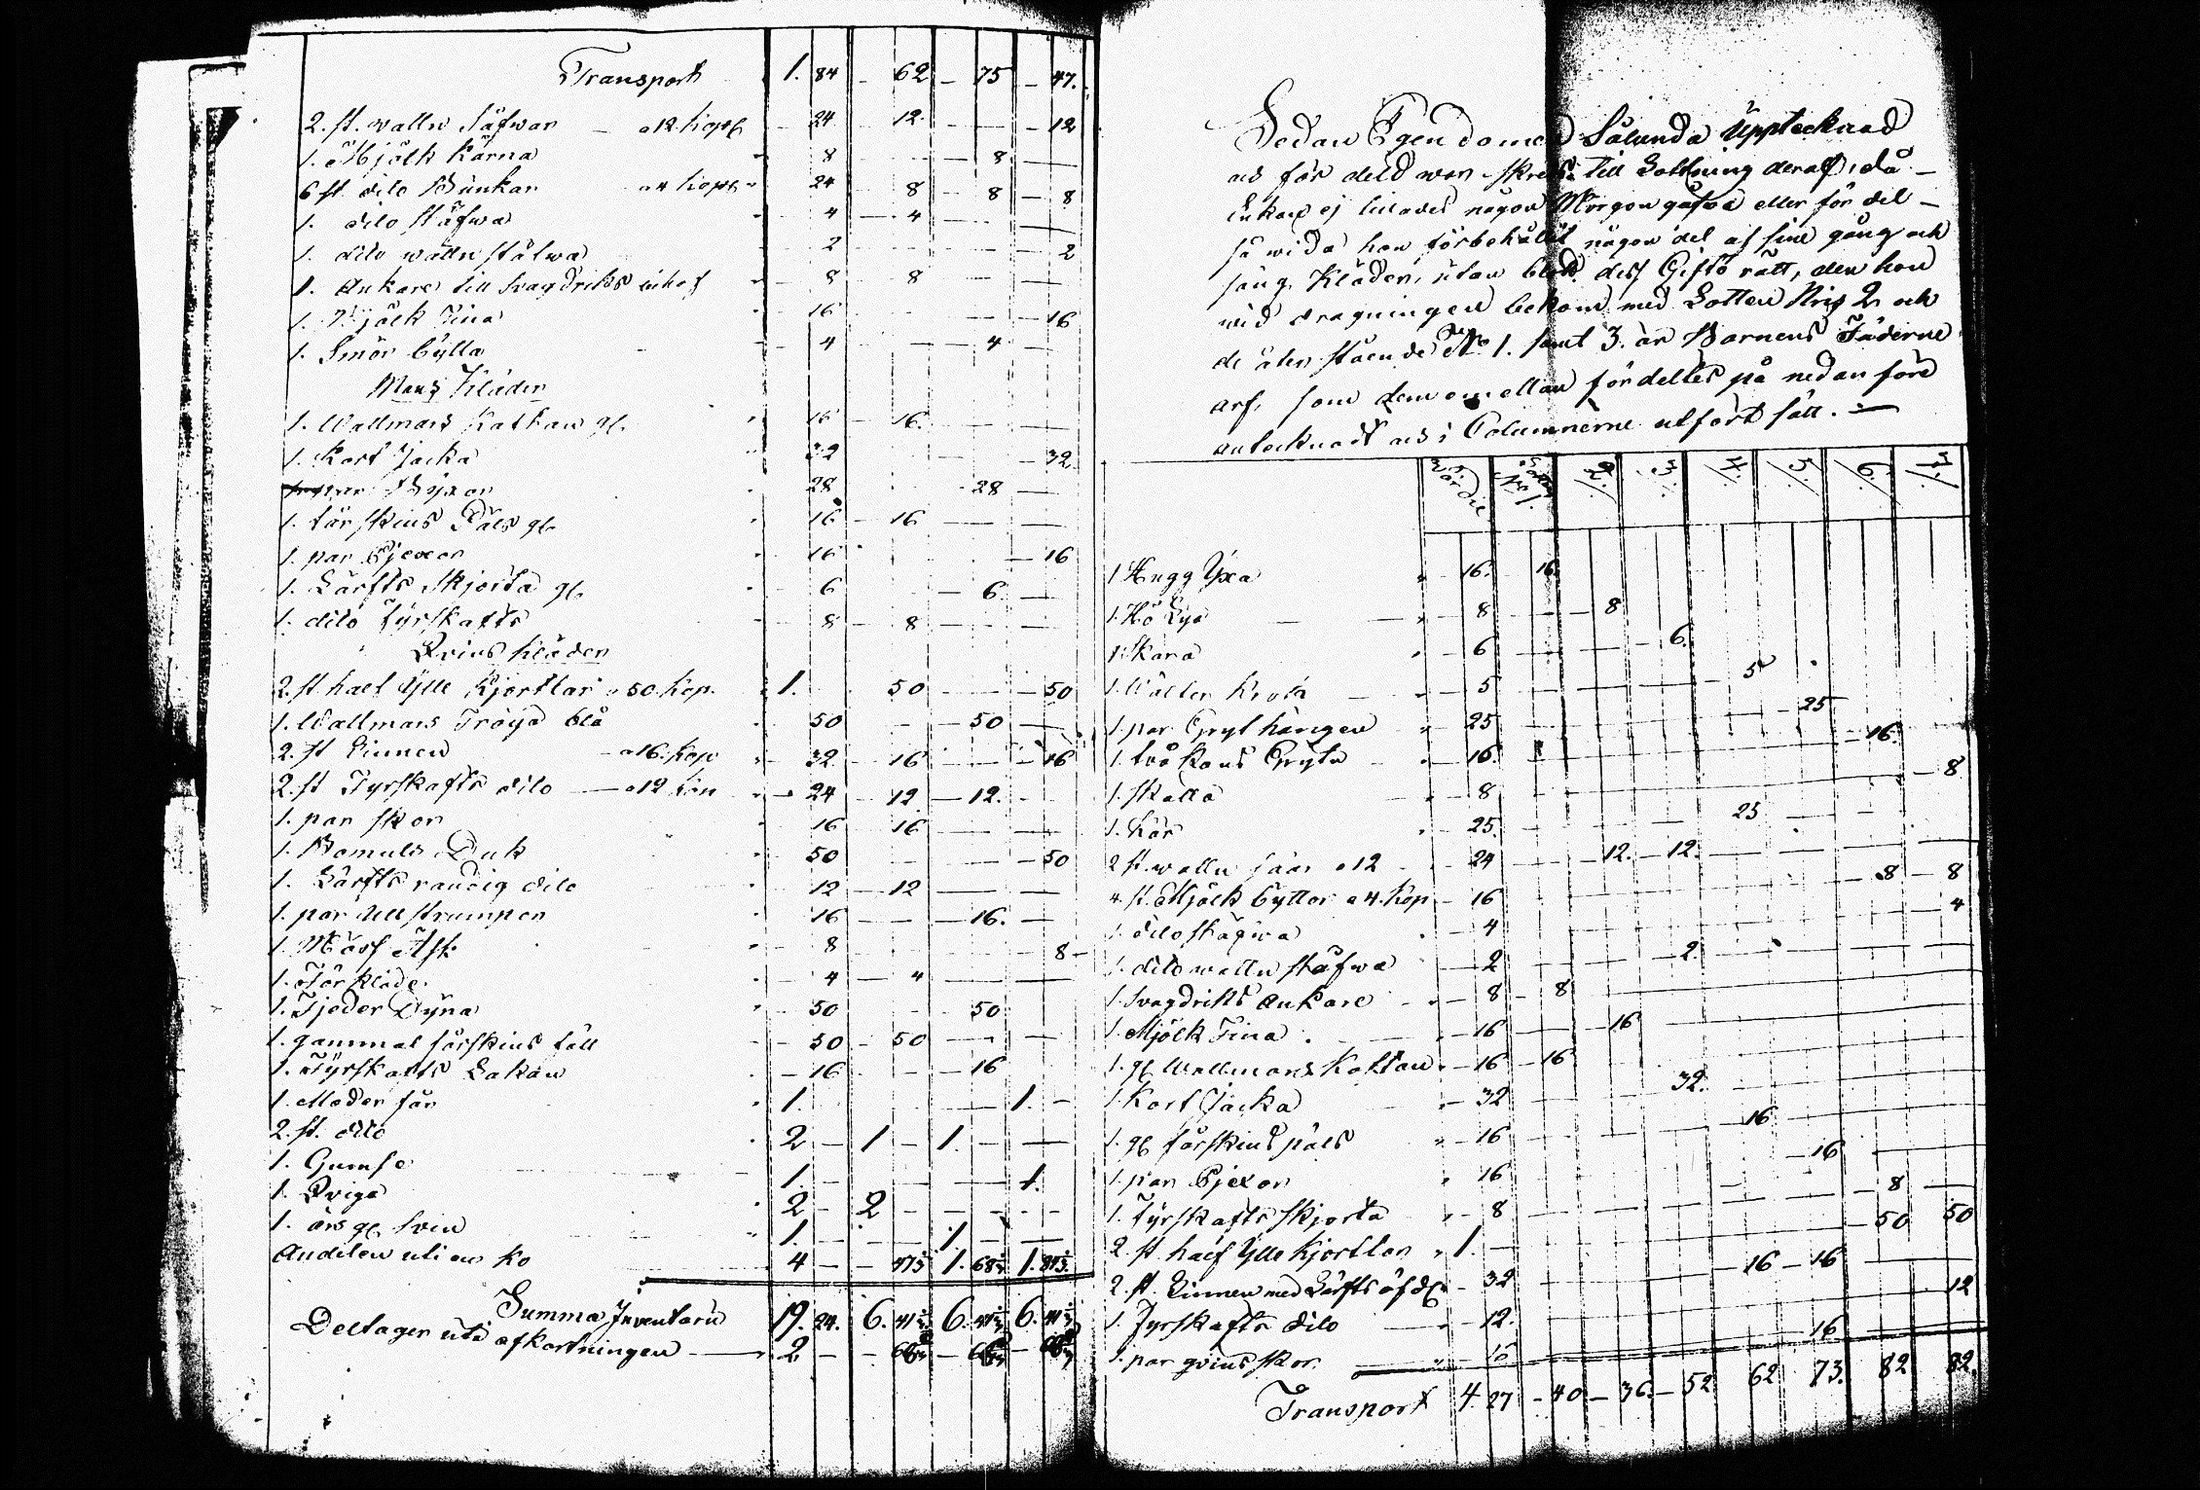 Transport 1. 84 – 62 – 75 – 47.
2. st. wattu Såfwar – a 12. kop – 24 – 12. – – – 12
1. Mjölk kärna – 8 – – – 8. –
6 st dito Bunkar a 4 kop – 24 – 8 – 8 – 8
1. dito stäfwa – 4 – 4 – –
1. dito wattu stäfwa – 2 – – – 2
1. Ankare till Svagdricks – 8 – 8
1. Mjölk Tina – 16 – – – 16
1. Smör bytta – 4 – – 4. –
Mans Kläder
1. Wallmars Kaftan gl. – 16 – 16.
1. Kort Jacka – 32 – – – 32
Byxor – 28 – – 28 –
1. fårskins Päls gl. – 16 – 16 – – –
1. par Pjexor – 16 – – – 16
1. Lärfts Skjorta gl. – 6 – – 6. –
1. dito fyrskafts – 8 – 8 – – –
Qvins kläder
2. st. half Ylle Kjortlar a 50. kop. 1. – 50 – – – 50
1. Wallmars Tröja blå – 50 – – 50 –
2. st Linnen – a 16. kop – 32 – 16 – – – 16
2. st Fyrskafts dito – a 12 – 24 – 12 – 12. –
1. par skor – 16 – 16 – – –
1. Bomuls Duk – 50 – – – 50
1. Lärfts randig dito – 12 – 12 – – –
1. par Ullstrumpor – 16 – – – 16. –
1. – 8 – – – 8 –
1. Förkläde – 4 – 4 – – –
1. Fjeder Dyna – 50 – – 50
1. gammal fårskins fäll – 50 – 50 – – –
1. Fyrskafts Lakan – 16 – – 16
1. Moder får 1. – – – 1. –
2. st. dito 2 – 1 – 1. – –
1. Gumse 1. – – – 1.
1. Qviga 2 – 2 – – – –
1. års gl. svin 1. – – 1. – –
Andelen uti en Ko 4 – –
Summa Inventarii 19. 24. 6. 6. 6.
Deltager uti afkortningen – 2 – –
Sedan Egendomen Sålunda Upptecknad
til Lottning deraf, då –
Enkan ej någon Morgongåfwa eller fördel –
så wida hon förbehållit någon del af sine gång och
säng Kläder, utan dess Giftorätt, den hon
wid dragningen bekom med Lotten Nris 2 och
de återstående No 1. samt 3. är Barnens Fäderne
arf, som dem emellan fördeltes på nedanföre
antecknadt i Columnerne utfört sätt. –
Wärde Lotten No 1. 2. 3. 4. 5. 6. 7.
1 Hugg Yxa – 16. – 16.
1. Hö – 8 – – – 8
1 Skära – 6 – – – 6.
1. – 5 – – – 5
1. par Gryt hängen – 25 – – – 25
1. två kans Gryta – 16. – – 16.
1. skålla – 8 – – 8
1. Kar – 25. – – – 25
2 st. wattu såar a 12 – 24 – – 12. – 12. –
4 st. Mjölk byttor a 4. kop – 16 – – 8 – 8
1. dito – 4 – – 4
1. dito wattu stäfwa – 2 – – 2.
1. Svagdricks Ankare – 8 – 8
1. Mjölk Tina – 16 – – 16
1. gl Wallmans Kaftan – 16 – 16
1. Kort Jacka – 32 – – 32.
1. gl fårskins päls – 16 – – – 16
1. par Pjexor – 16 – – – 16
1. fyrskafts skjorta – 8 – – – 8 –
2. st half Ylle Kjortlar 1. – – – 50 50
2. st. Linnen med Lärfts – 32 – – – 16 – 16
1. Fyrskafts dito – 12. – – 12
1. par qvins skor. – 16 – – 16.
Transport 4. 27 – 40 – 36. – 52 62 73. 82 82.